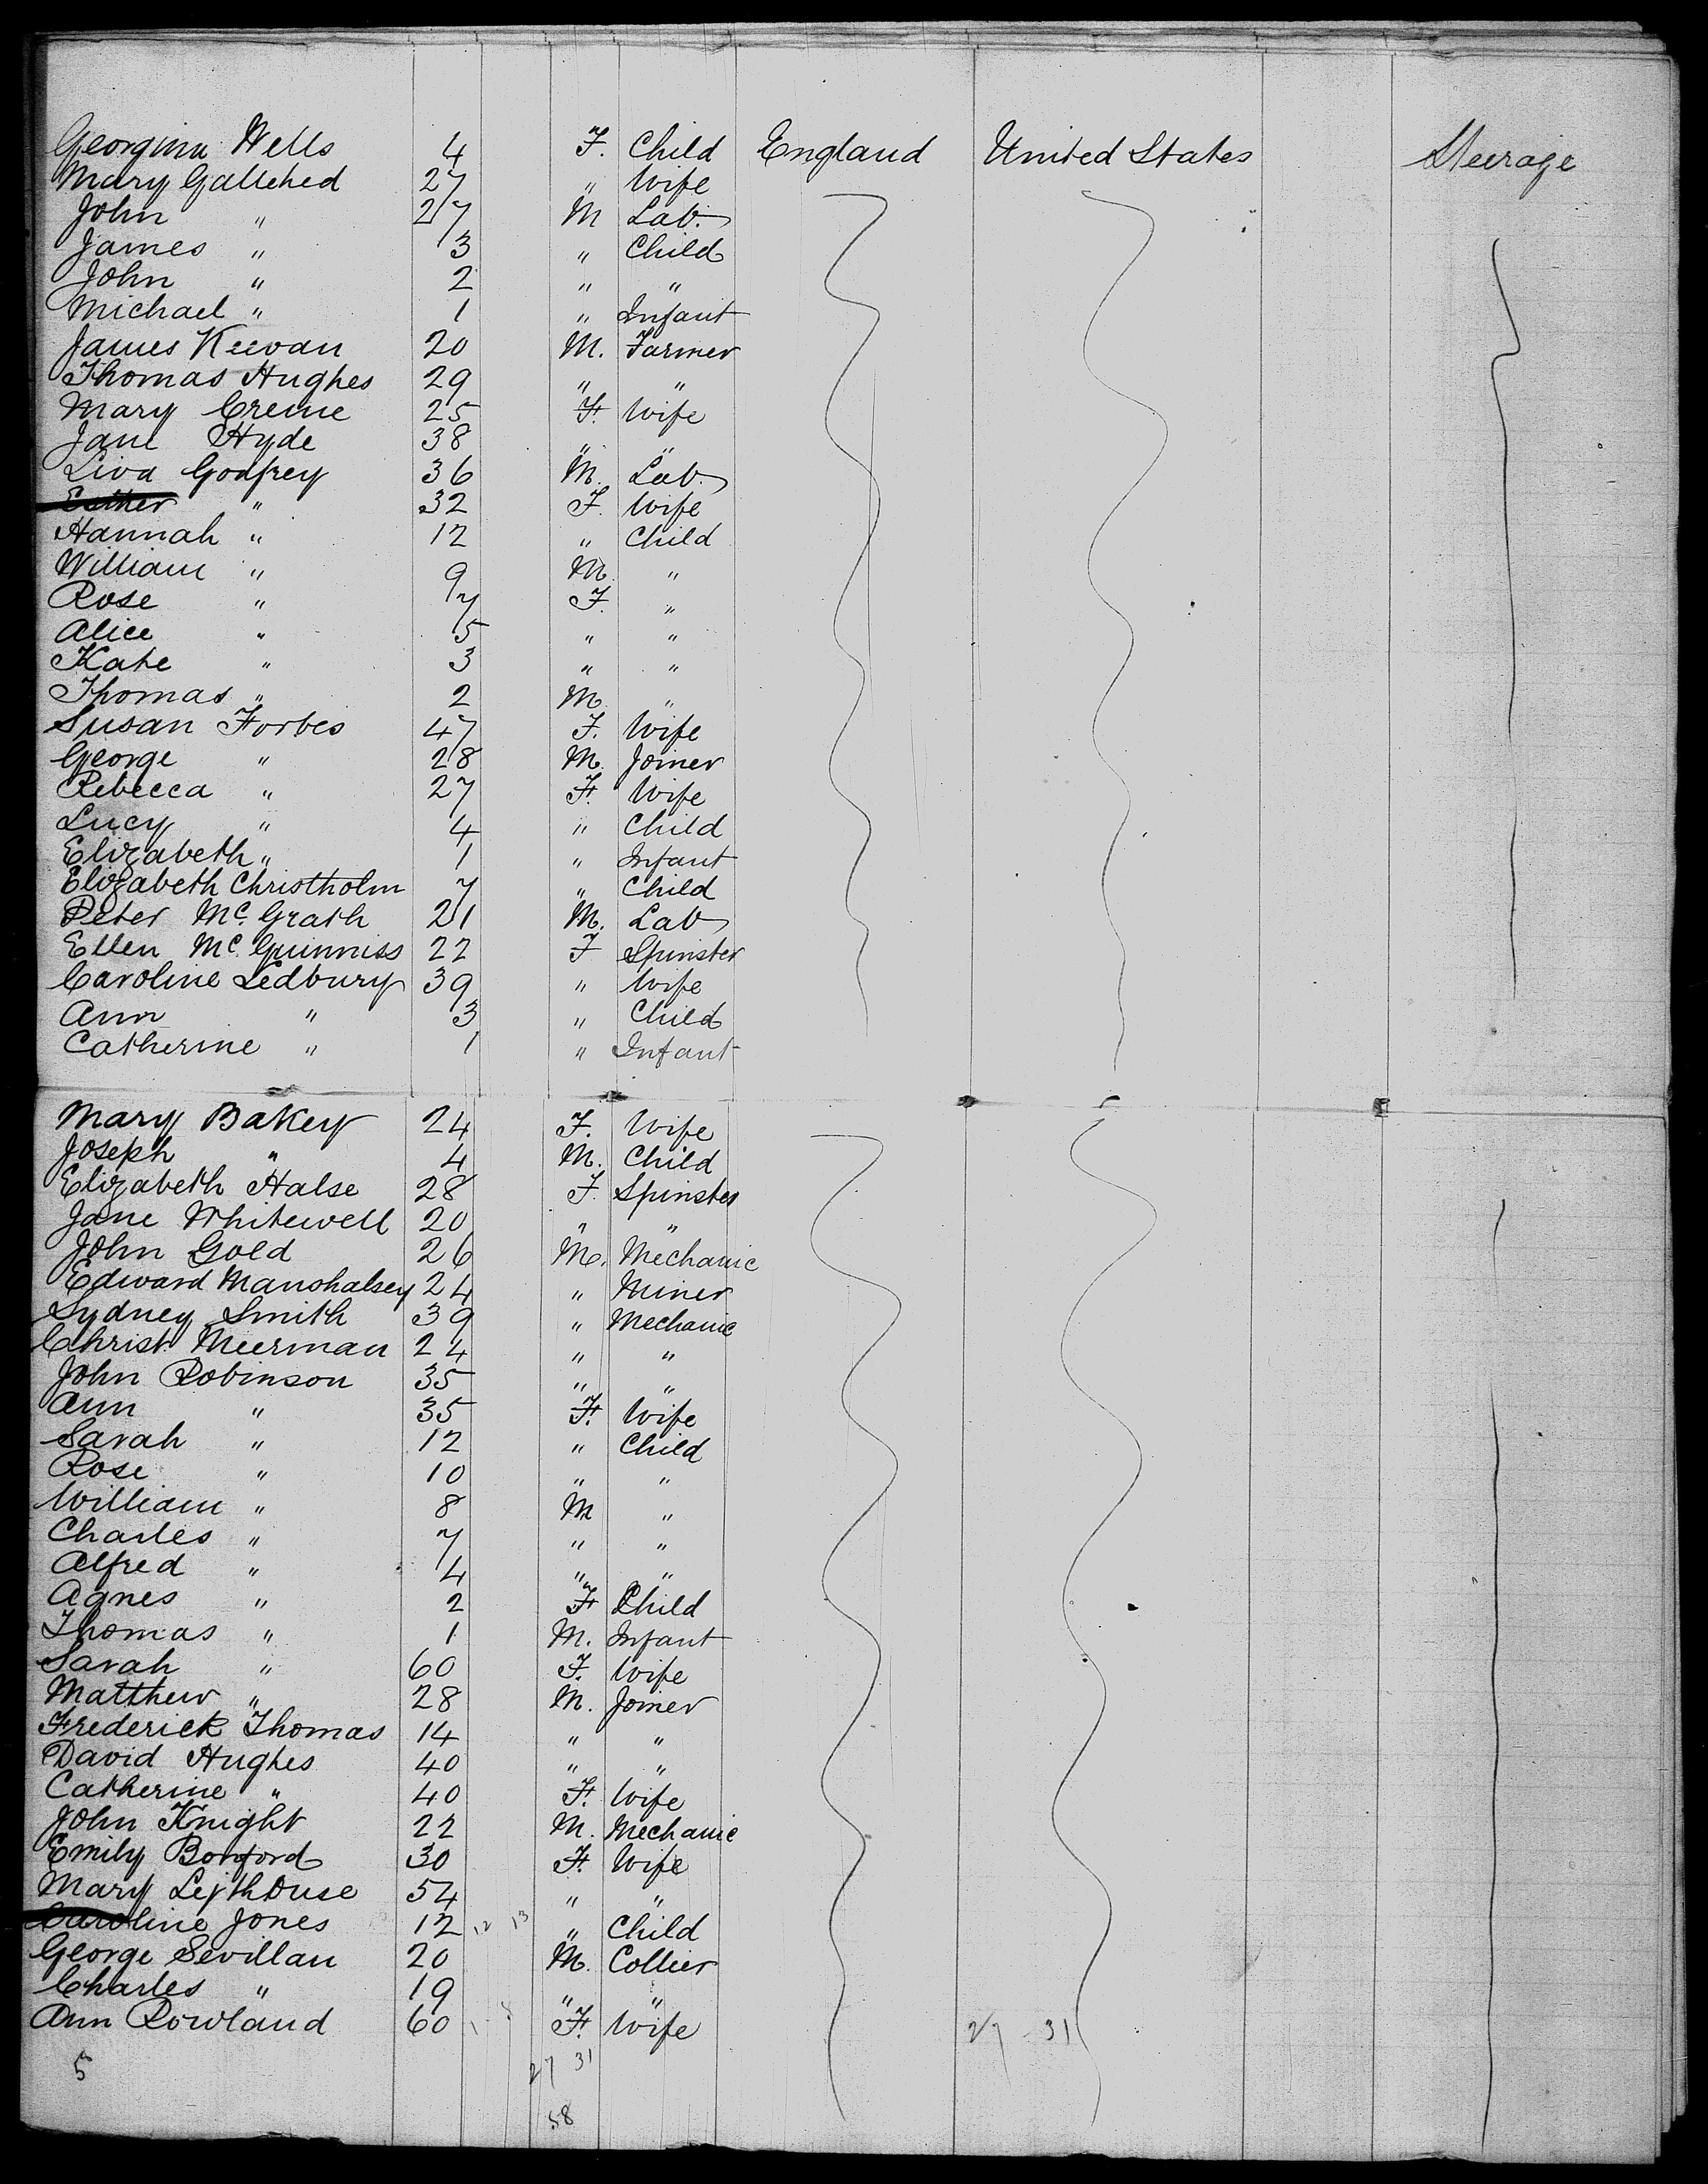 Georgina Wells 4 F. Child England United States Steerage
Mary Gallehed 27 " Wife
John " 27 M Lab.
James " 3 " Child
John " 2 " "
Michael " 1 " Infant
James Keevan 20 M. Farmer
Thomas Hughes 29 " "
Mary Creme 25 F. Wife
Jane Hyde 38 " "
Liva Godfrey 36 M. Lab.
Esther " 32 F. Wife
Hannah " 12 " Child
William " 9 M. "
Rose " 7 F. "
Alice " 5 " "
Kate " 3 " "
Thomas " 2 M. "
Susan Forbes 47 F. Wife
George " 28 M. Joiner
Rebecca " 27 F. Wife
Lucy " 4 " Child
Elizabeth " 1 " Infant
Elizabeth Christholm 7 " Child
Peter Mc. Grath 21 M. Lab
Ellen Mc. Gunniss 22 F Spinster
Caroline Ledbury 39 " Wife
Ann " 3 " Child
Catherine " 1 " Infant
Mary Bakey 24 F. Wife
Joseph " 4 M. Child
Elizabeth Halse 28 F. Spinster
Jane Whitewell 20 " "
John Gold 26 M. Mechanic
Edward Manshalsey 24 " Miner
Sydney Smith 39 " Mechanic
Christ. Meerman 24 " "
John Robinson 35 " "
Ann " 35 F. Wife
Sarah " 12 " Child
Rose " 10 " "
William " 8 M "
Charles " 7 " "
Alfred " 4 " "
Agnes " 2 F Child
Thomas " 1 M. Infant
Sarah " 60 F. Wife
Matthew " 28 M. Joiner
Frederick Thomas 14 " "
David Hughes 40 " "
Catherine " 40 F. Wife
John Knight 22 M. Mechanic
Emily 30 F. Wife
Mary 54 " "
Caroline Jones 12 12 13 " Child
George Sevillan 20 M. Collier
Charles " 19 " "
Ann Rowland 60 F. Wife 27 31
5 27 31
58